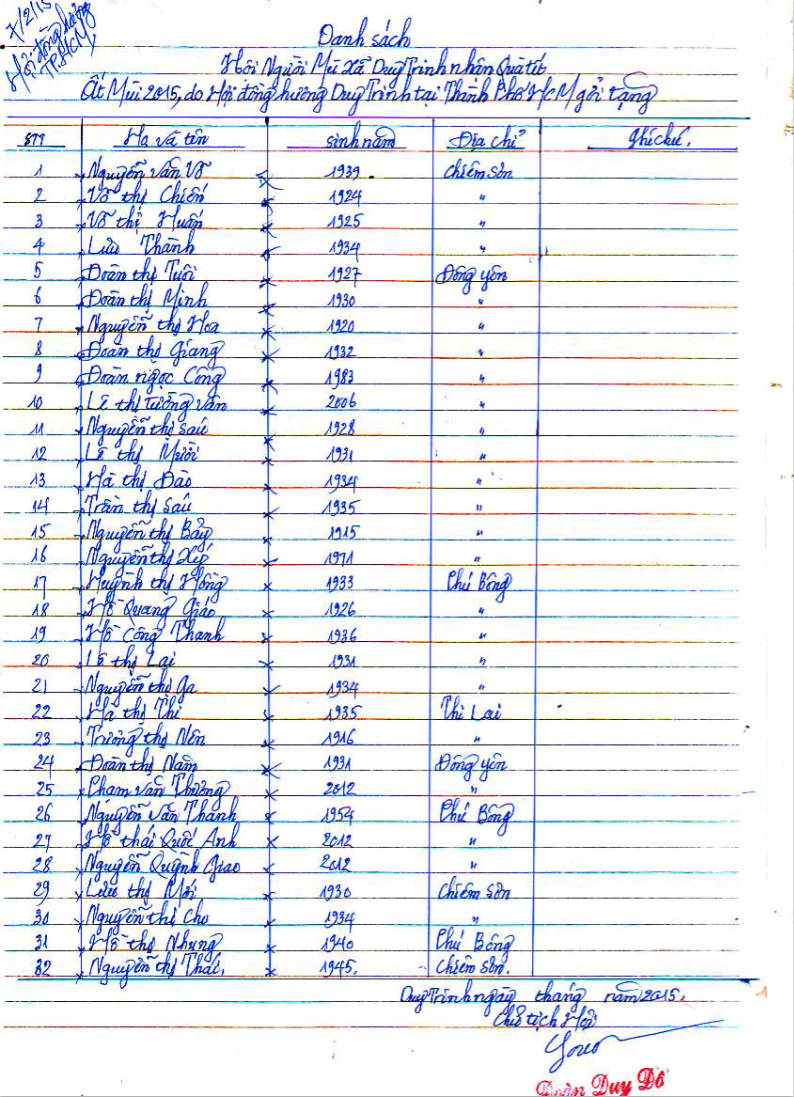 7/2/15
Hội đồng hương
TP.HCM
Danh sách
Hội Người Mù Xã Duy Trinh nhận Quà tết
Ất Mùi 2015, do Hội đồng hương Duy Trinh tại Thành Phố HCM gởi tặng
STT Họ và tên sinh năm Địa chỉ Ghi chú.
1 Nguyễn Văn Võ 1939 Chiêm Sơn
2 Võ thị Chiến 1924 "
3 Võ thị Huấn 1925 "
4 Lưu Thành 1934 "
5 Đoàn thị Tuôi 1927 Đông yên
6 Đoàn thị Minh 1930 "
7 Nguyễn thị Hoa 1920 "
8 Đoàn thị Giang 1932 "
9 Đoàn ngọc Công 1983 "
10 Lê thị Tường Vân 2006 "
11 Nguyễn thị Sáu 1928 "
12 Lê thị Mười 1931 "
13 Hà thị Đào 1934 "
14 Trần thị Sáu 1935 "
15 Nguyễn thị Bảy 1915 "
16 Nguyễn thị Xếp 1971 "
17 Huỳnh thị Hồng 1933 Phú Bông
18 Hồ Quang Giáo 1926 "
19 Hồ Công Thanh 1936 "
20 Lê thị Lai 1931 "
21 Nguyễn thị Ga 1934 "
22 Hà thị Thí 1935 Thi Lai
23 Trương thị Nên 1916 "
24 Đoàn thị Năm 1931 Đông yên
25 Phạm văn Thường 2012 "
26 Nguyễn Văn Thành 1954 Phú Bông
27 Hồ thái Quốc Anh 2012 "
28 Nguyễn Quỳnh Giao 2012 "
29 Lưu thị Mới 1930 Chiêm Sơn
30 Nguyễn thị Cho 1934 "
31 Hồ thị Nhung 1940 Phú Bông
32 Nguyễn thị Thái. 1945. Chiêm Sơn.
Duy Trinh ngày tháng năm 2015.
Chủ tịch Hội
Đoàn Duy Đô